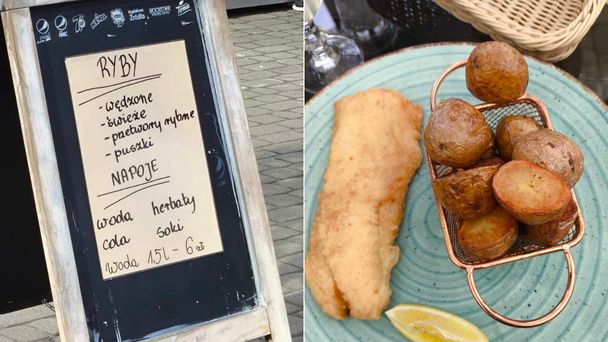 RYBY
- wędzone
- świeże
- przetwory rybne
- puszki
NAPOJE
woda herbaty
cola soki
woda 1,5L - 6 zł